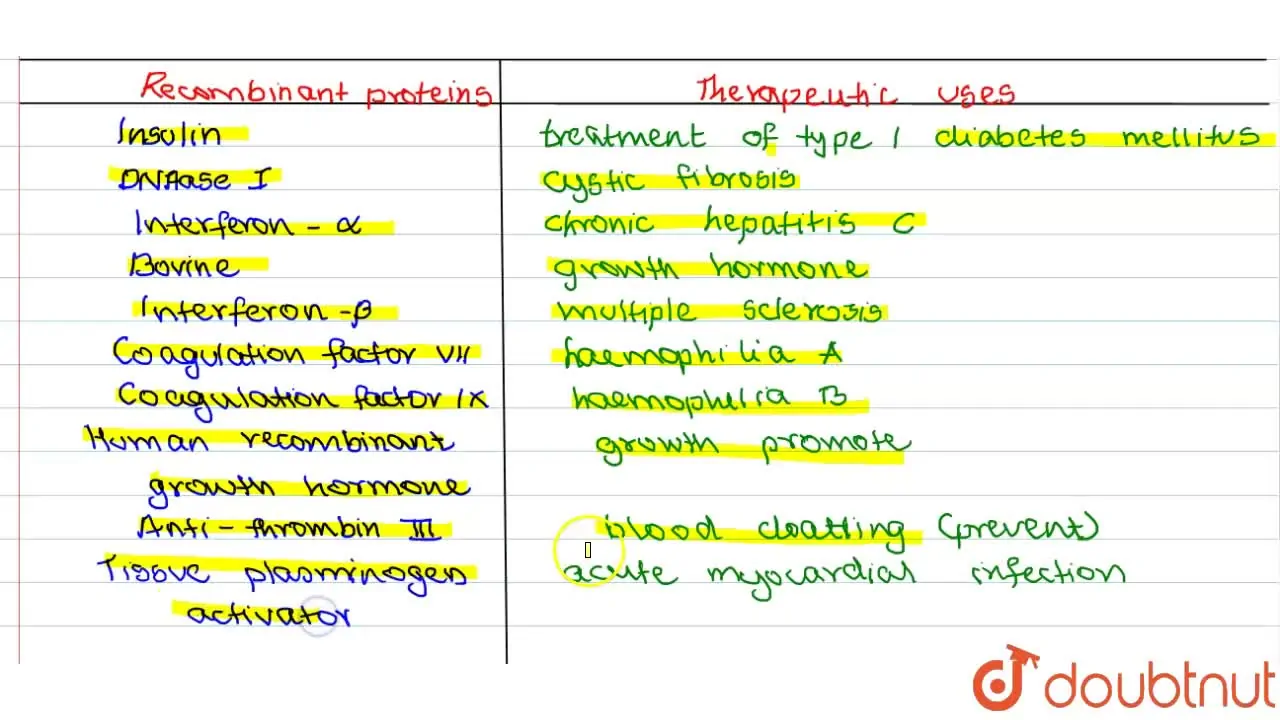 Recombinant proteins Therapeutic uses
Insulin treatment of type 1 diabetes mellitus
DNAase I cystic fibrosis
Interferon - α chronic hepatitis C
Bovine growth hormone
Interferon -β multiple sclerosis
Coagulation factor VII haemophilia A
Coagulation factor IX haemophelia B
Human recombinant growth promote
growth hormone
Anti - thrombin III blood cloatting (prevent)
Tissue plasminogen acute myocardial infection
activator
doubtnut